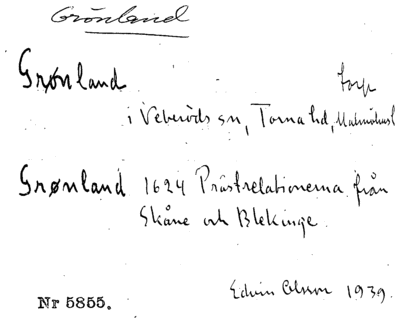 Grönland
Grønland torp
i Veberöds sn, Torna hd, Malmöhusl
Grønland 1624 Prästrelationerna från
Skåne och Blekinge.
Edvin Olsson 1939.
Nr 5855.